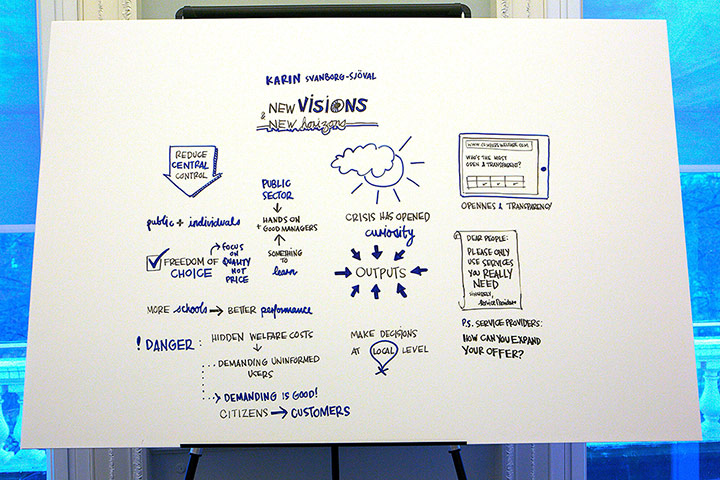 KARIN SVANBORG-SJÖVAL
NEW VISIONS
& NEW horizons
REDUCE
CENTRAL
CONTROL
public + individuals
FREEDOM OF
CHOICE
FOCUS
ON
QUALITY
NOT
PRICE
PUBLIC
SECTOR
HANDS ON
+ GOOD MANAGERS
SOMETHING
TO
learn
MORE schools → BETTER performance
! DANGER:
HIDDEN WELFARE COSTS
DEMANDING UNINFORMED
USERS
DEMANDING IS GOOD!
CITIZENS → CUSTOMERS
CRISIS HAS OPENED
curiosity
OUTPUTS
MAKE DECISIONS
AT LOCAL LEVEL
WHO'S THE MOST
OPEN & TRANSPARENT?
OPENNES & TRANSPARENCY
DEAR PEOPLE:
PLEASE ONLY
USE SERVICES
YOU REALLY
NEED
SINCERELY,
Service Providers
P.S. SERVICE PROVIDERS:
HOW CAN YOU EXPAND
YOUR OFFER?